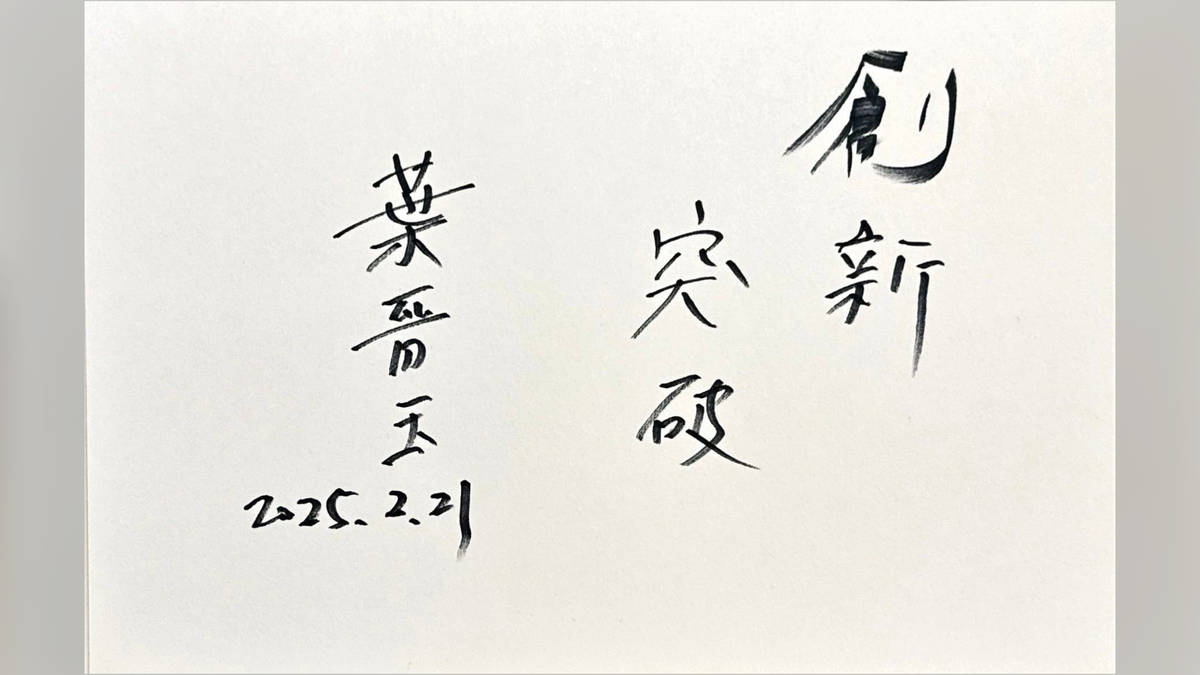 創新
突破
葉晋玉
2025.2.21